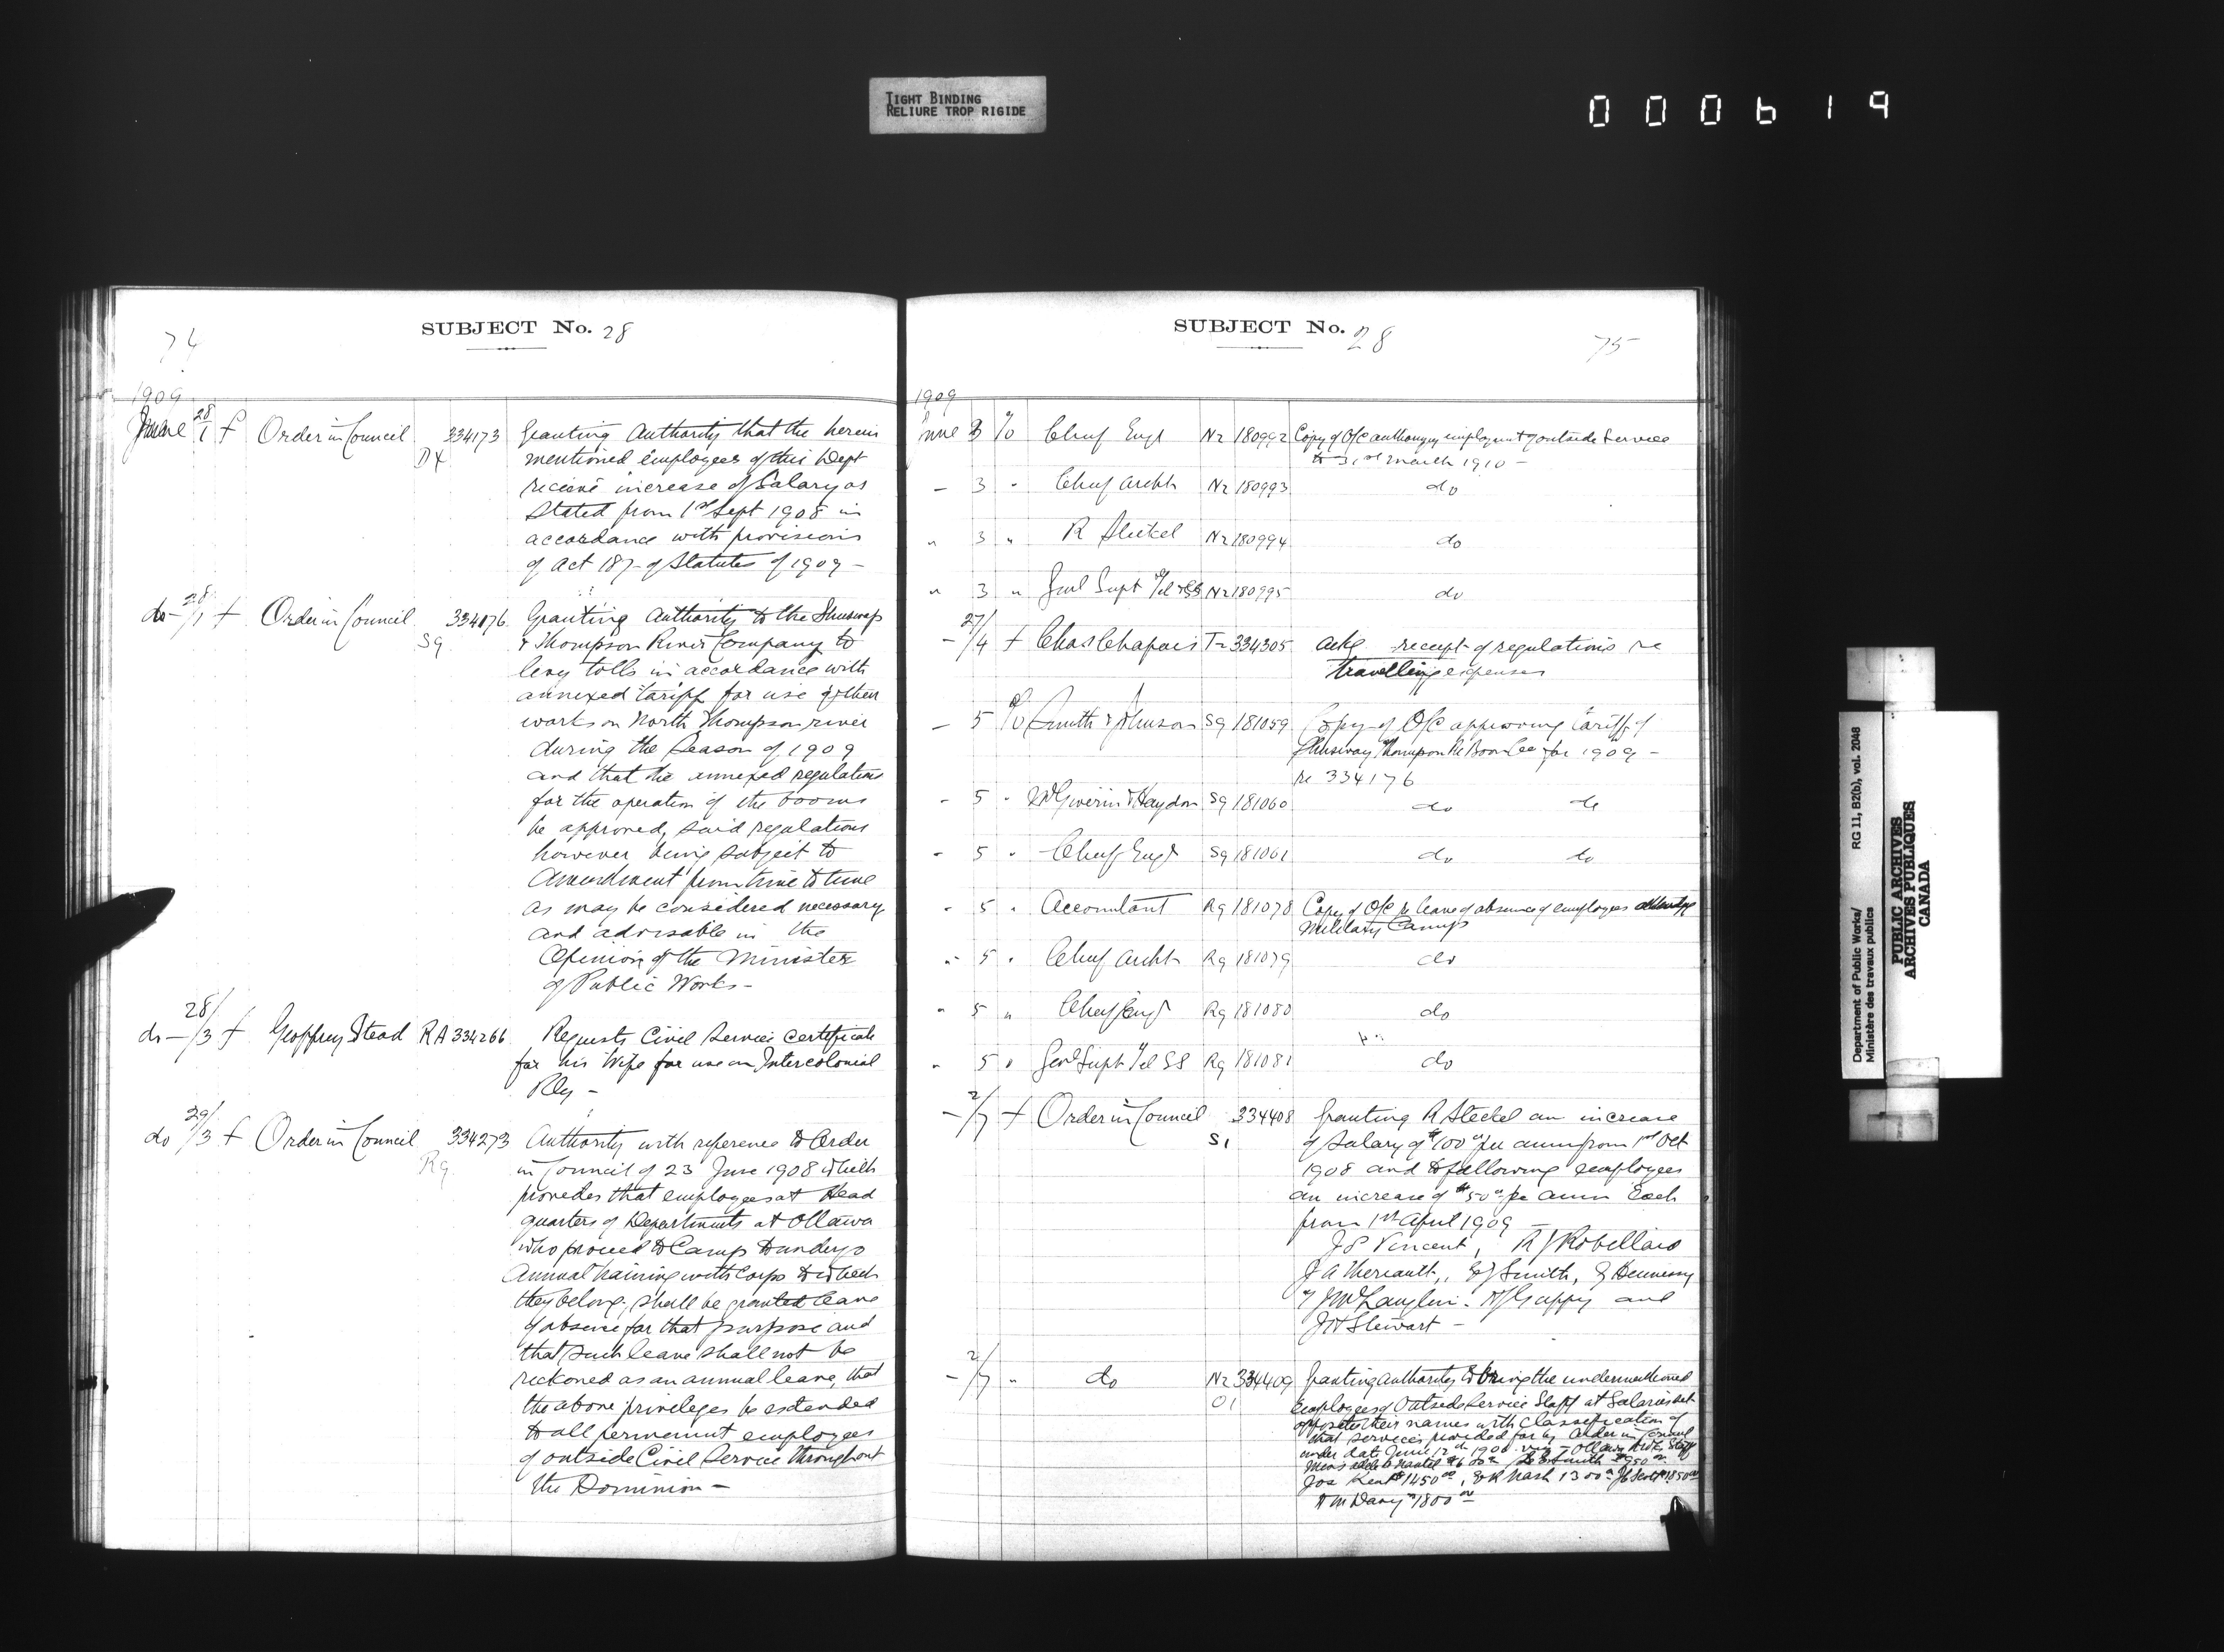 TIGHT BINDING
RELIURE TROP RIGIDE
000619
74
SUBJECT No. 28
1909
June 28/1 f Order in Council 334173 Granting Authority that the herein
DX mentioned employees of this Dept
receive increase of Salary as
stated from 1st Sept 1908 in
accordance with provisions
of Act 187 of Statutes of 1909 -
do - 28/1 f Order in Council 334176 Granting Authority to the Shuswap
Sq & Thompson River Company to
levy tolls in accordance with
annexed tariff for use of their
works on North Thompson river
during the Season of 1909
and that the annexed regulations
for the operation of the booms
be approved, said regulations
however being subject to
Amendment from time to time
as may be considered necessary
and advisable in the
Opinion of the Minister
of Public Works -
do - 28/3 f Geoffrey Stead RA 334266 Requests Civil Service Certificate
for his Wife for use on Intercolonial
Rly -
do 29/3 f Order in Council 334273 Authority with reference to Order
Rq in Council of 23 June 1908 which
provides that employees at Head
quarters of Departments at Ottawa
who proceed to Camp to undergo
Annual training with Corps to which
they belong, shall be granted leave
of absence for that purpose and
that such leave shall not be
reckoned as an annual leave, that
the above privileges be extended
to all permanent employees
of outside Civil Service throughout
the Dominion -
SUBJECT No. 28
75
1909
June 3 % Chief Engr Nz 180992 Copy of O/C authorizing employment of outside Service
to 31st March 1910 -
- 3 " Chief Archt Nz 180993 do
" 3 " R Steckel Nz 180994 do
" 3 " Genl Supt Tel SS Nz 180995 do
- 27/4 f Chas Chapais Tz 334305 ackg receipt of regulations re
travelling expenses
- 5 % Smith & Johnson Sq 181059 Copy of O/C approving tariff of
Thompson R Boom Co for 1909 -
re 334176
" 5 " McGiverin & Haydon Sq 181060 do do
" 5 " Chief Engr Sq 181061 do do
" 5 " Accountant Rq 181078 Copy of O/C re leave of absence of employees attending
Military Camps
" 5 " Chief Archt Rq 181079 do
" 5 " Chief Engr Rq 181080 do
" 5 " Genl Supt Tel SS Rq 181081 do
- 2/7 f Order in Council 334408 Granting R Steckel an increase
S1 of Salary of $100 00 per annum from 1st Oct
1908 and to following employees
an increase of $50 00 per annum Each
from 1st April 1909 -
J P Vincent, R J Robillard
J A Theriault, E J Smith, Hennessy
J McLaughlin. Guppy and
J H Stewart -
- 2/7 " do Nz 334409 Granting authority to bring the undermentioned
O1 Employees of Outside Service Staff at Salaries set
opposite their names with Classification of
that service provided for by Order in Council
under date June 12th 1908 viz - Ottawa Archts Staff
Smith $950 00
Jos Kent $1450 00, E R Nash 1300 00 Scott $1850 00
Davy $1800 00
Department of Public Works/ RG 11, B2(b), vol. 2048
Ministère des travaux publics
PUBLIC ARCHIVES
ARCHIVES PUBLIQUES
CANADA